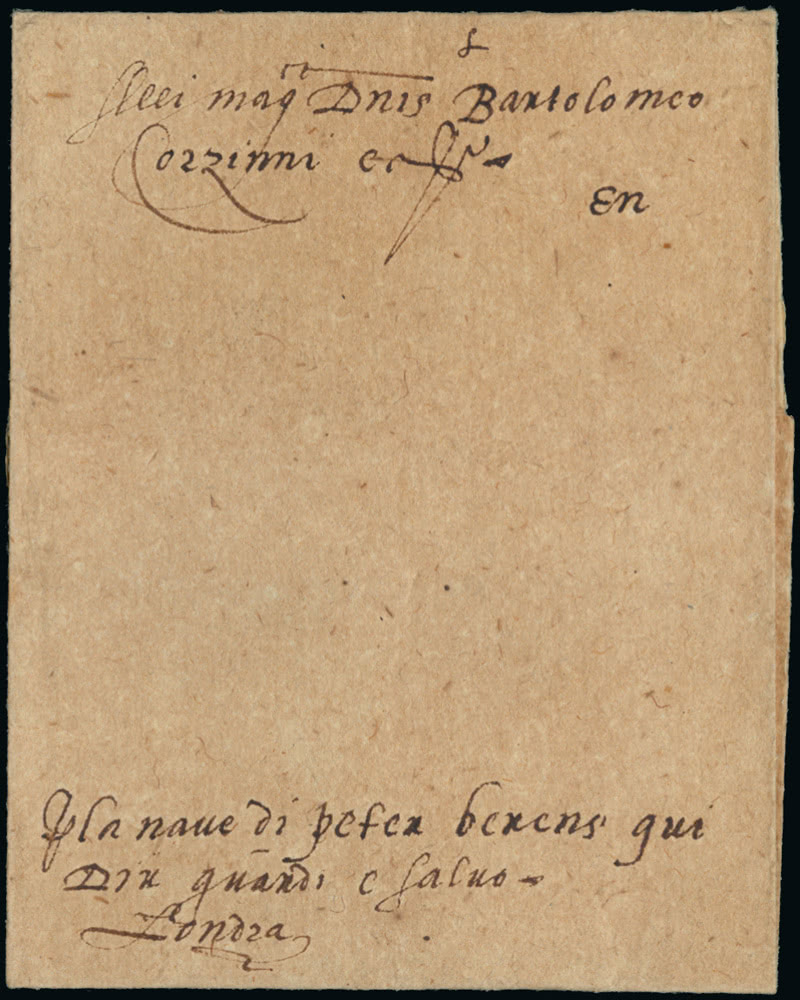 Alli mag^ci Dnis Bartolomeo
Corzinni
En
p la naue di peter berens qui
Dio guardi e saluo
Londra